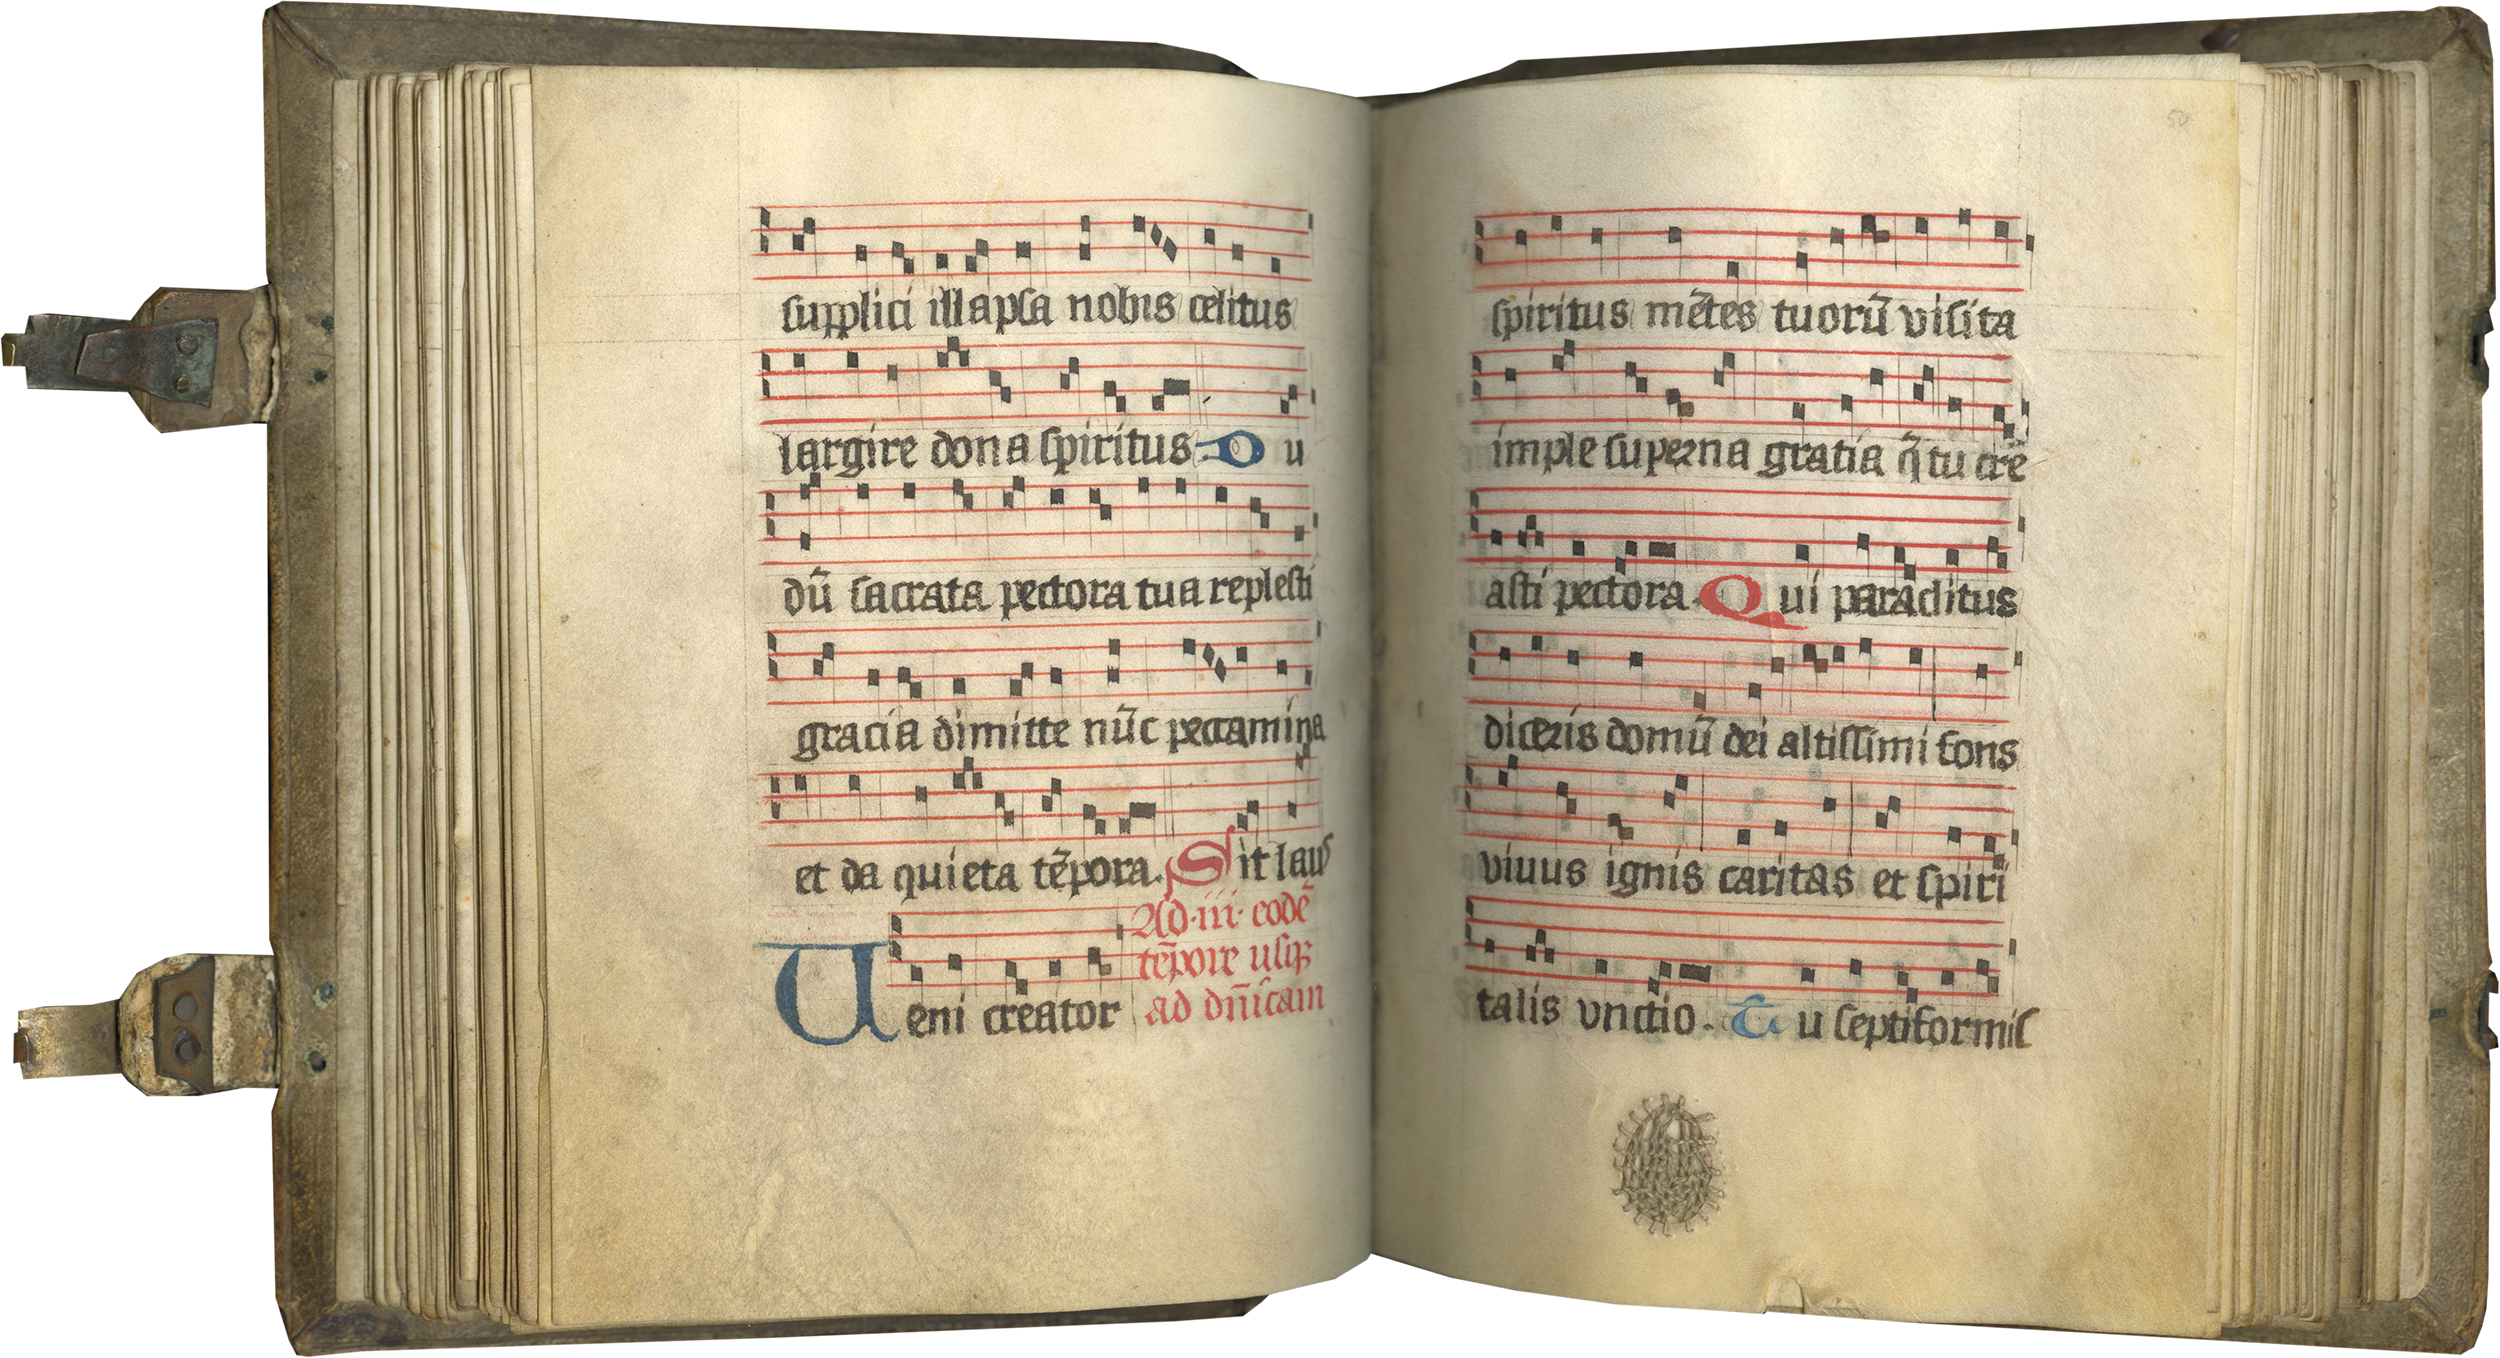 supplici illapsa nobis celitus
largire dona spiritus. Du
dū sacrata pectora tua replesti
gracia dimitte nūc peccamina
et da quieta tēpora. Sit laus
Ad .iii. eodē
tēpore usqȝ
ad dn̄icam
Ueni creator
50
spiritus mētes tuorū visita
imple superna gratia q̄ tu cre
asti pectora. Qui paraclitus
diceris domū dei altissimi fons
vivus ignis caritas et spiri
talis vnctio. Tu septiformis